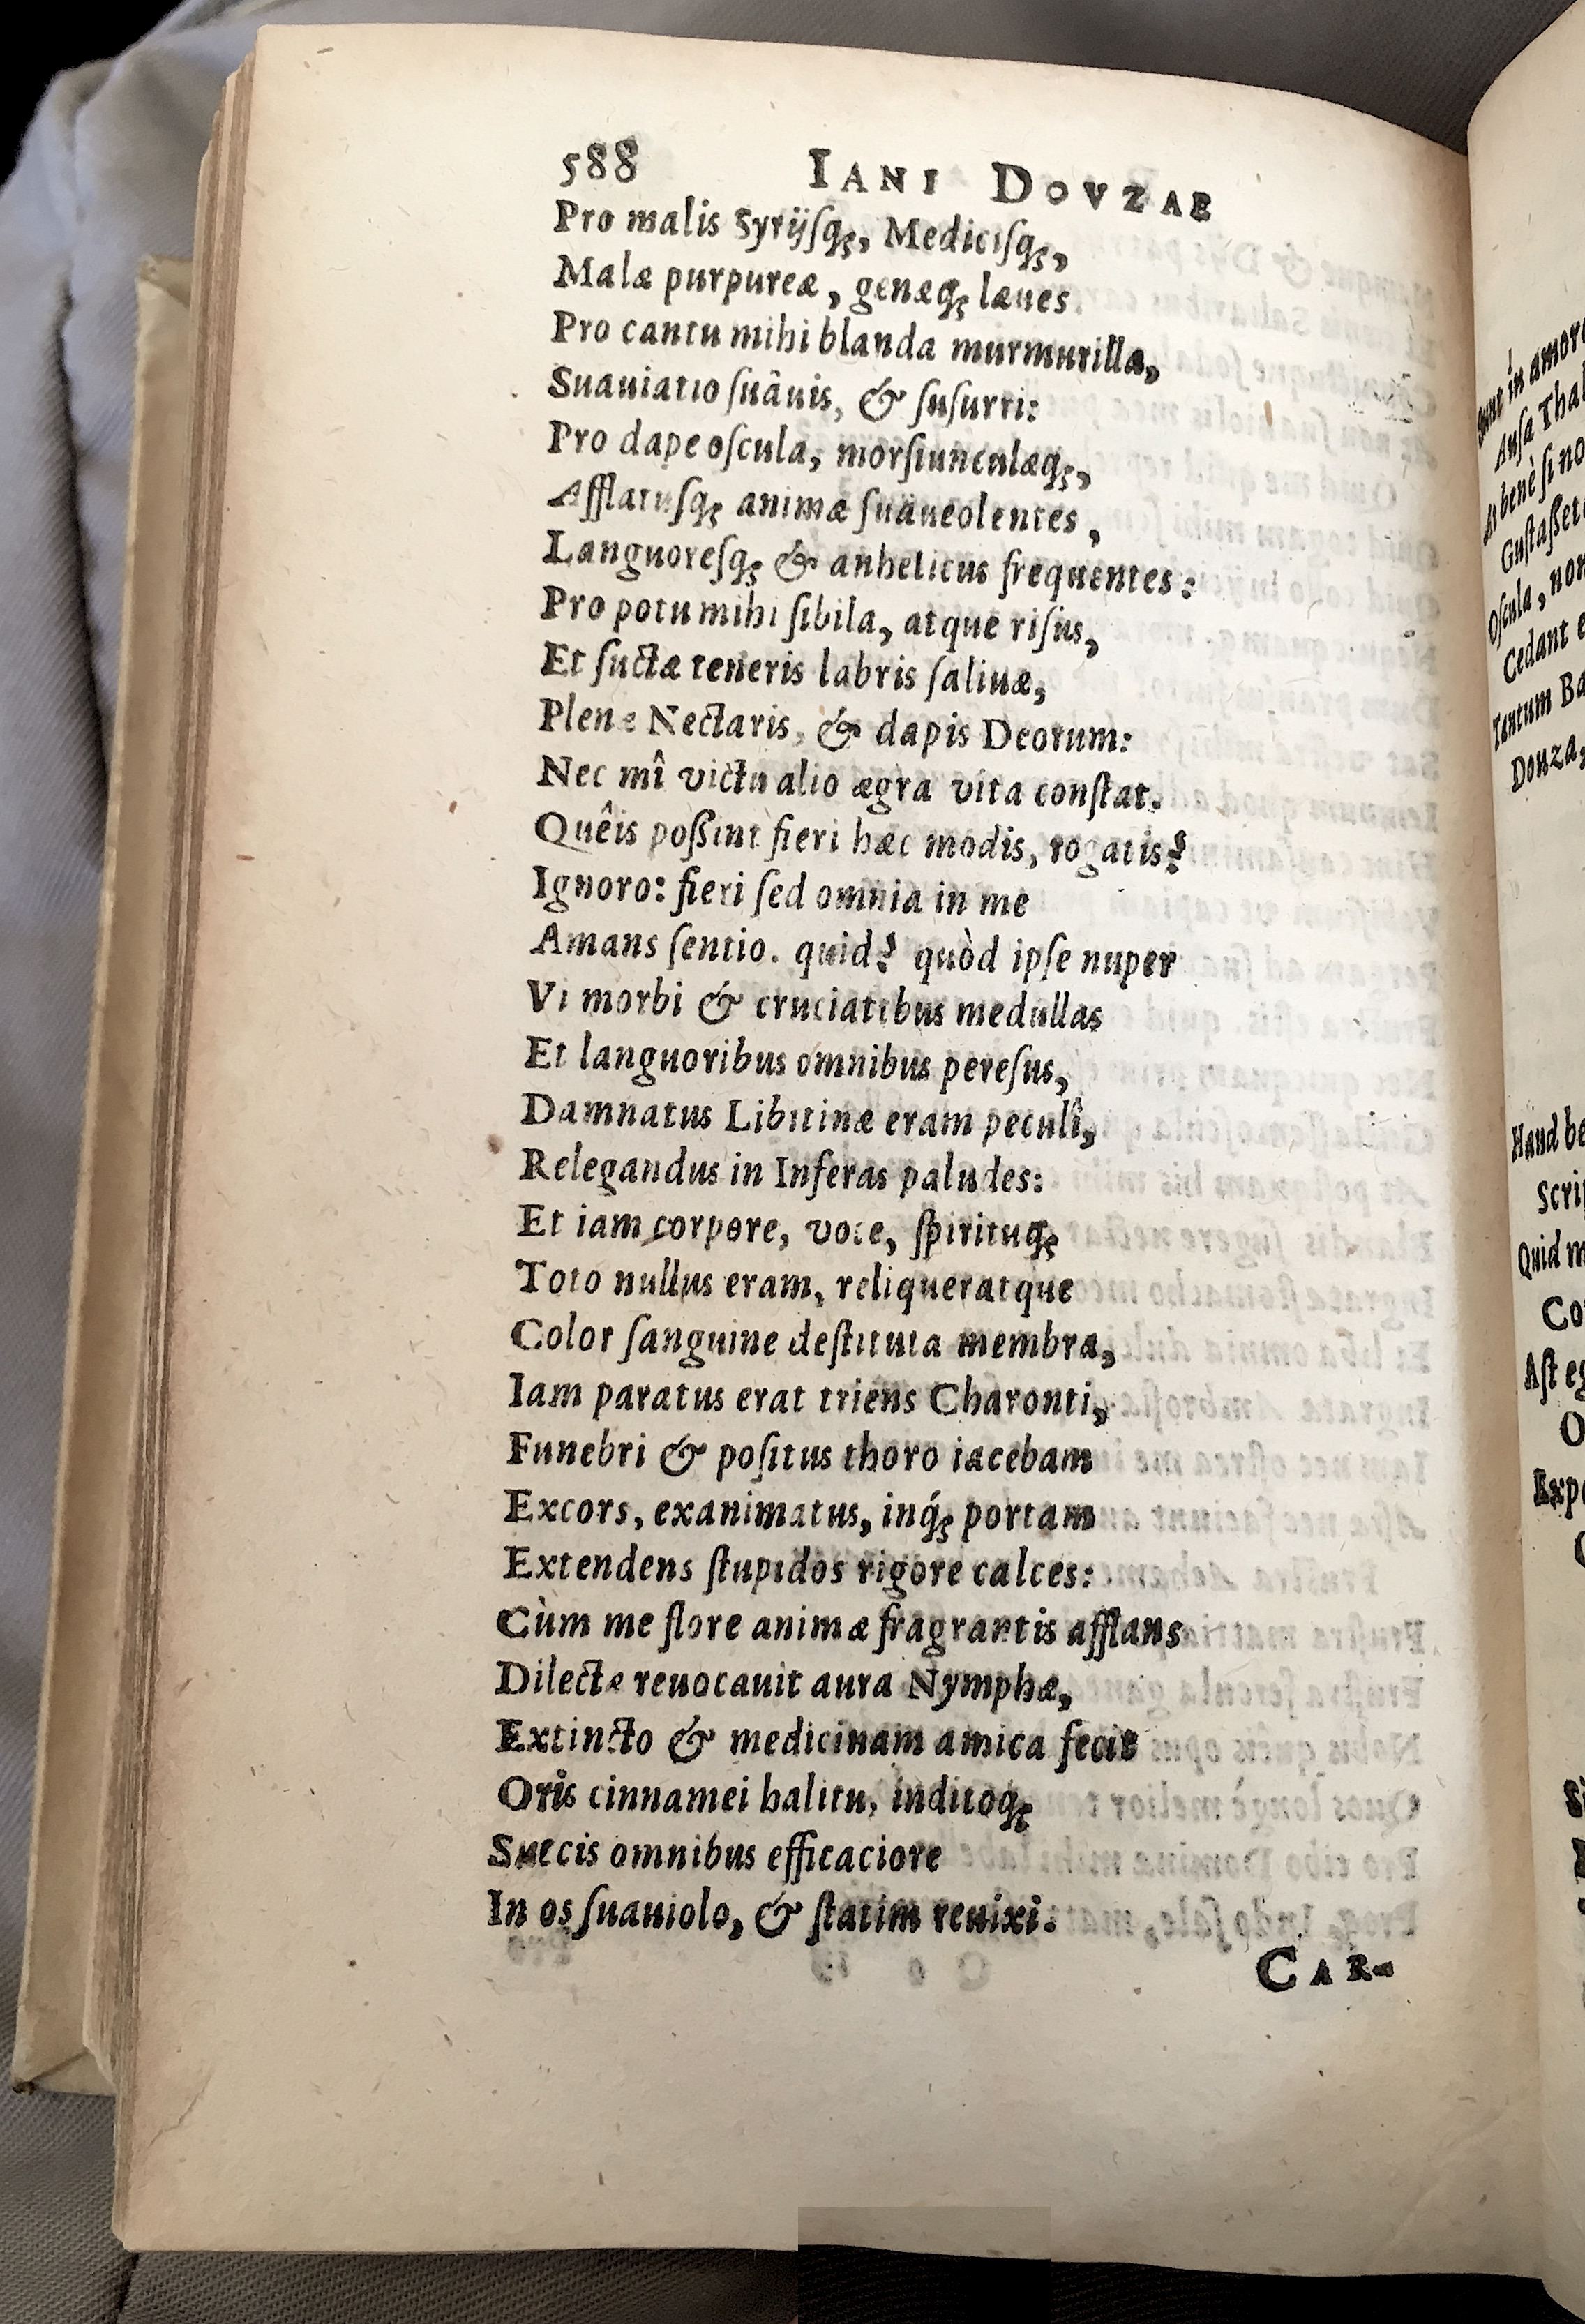 588 IANI DOVZAE
Pro malis Syrijſq́ꝫ, Mediciſq́ꝫ,
Malæ purpureæ, genæqꝫ læues.
Pro cantu mihi blanda murmurilla,
Suauiatio ſuâuis, & ſuſurri:
Pro dape oſcula, morſiunculæqꝫ,
Afflatuſqꝫ animæ ſuâueolentes,
Languoreſqꝫ & anhelitus frequentes:
Pro potu mihi ſibila, atque riſus,
Et ſuctæ teneris labris ſaliuæ,
Plenæ Nectaris, & dapis Deorum:
Nec mî victu alio ægra vita conſtat.
Quêis poßint fieri hæc modis, rogatis?
Ignoro: fieri ſed omnia in me
Amans ſentio. quid? quòd ipſe nuper
Vi morbi & cruciatibus medullas
Et languoribus omnibus pereſus,
Damnatus Libitinæ eram peculî,
Relegandus in Inferas paludes:
Et iam corpore, voce, ſpirituqꝫ
Toto nullus eram, reliqueratque
Color ſanguine deſtituta membra,
Iam paratus erat triens Charonti,
Funebri & poſitus thoro iacebam
Excors, exanimatus, inq́ꝫ portam
Extendens ſtupidos rigore calces:
Cùm me flore animæ fragrantis afflans
Dilectæ reuocauit aura Nymphæ,
Extincto & medicinam amica fecit
Oris cinnamei halitu, inditoqꝫ
Succis omnibus efficaciore
In os ſuauiolo, & ſtatim reuixi.
CAR-
ſunt in amore
Auſa Thal
At benè ſi no
Guſtaßet
Oſcula, non
Cedant e
Tantum Ba
Douza,
Haud be
Scrip
Quid m
Co
Aſt eg
O
Expe